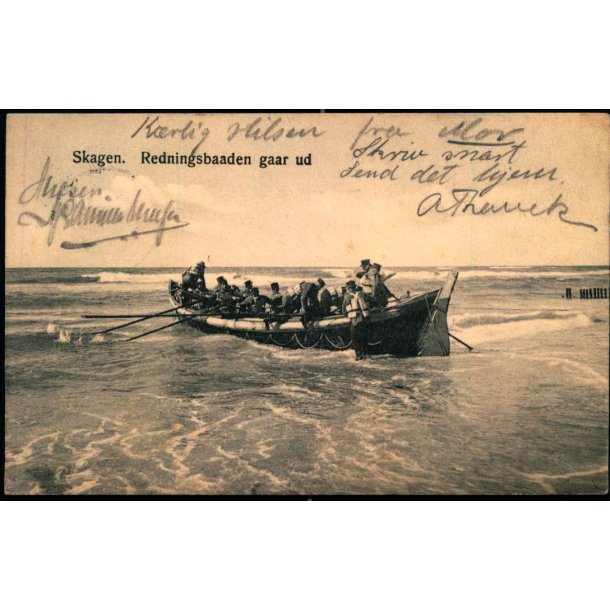 Kærlig Hilsen fra Mor
Skagen. Redningsbaaden gaar ud
Skriv snart
Send det hjem.